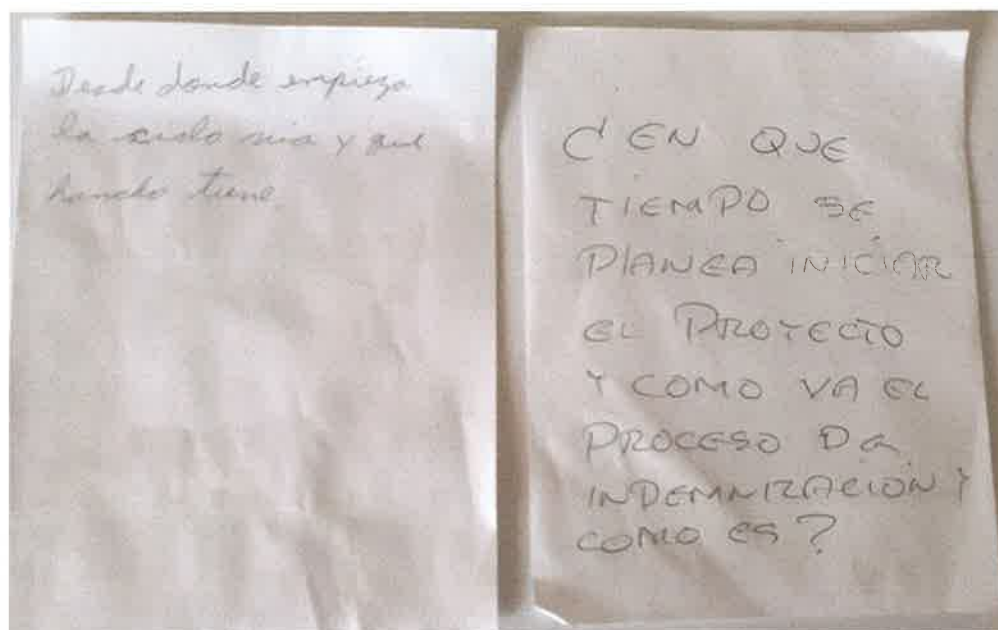 Desde donde empieza
la ciclo via y que
hancho tiene
¿ EN QUE
TIEMPO SE
PLANEA INICIAR
EL PROYECTO
Y COMO VA EL
PROCESO DE
INDEMNIZACIÓN Y
COMO ES?